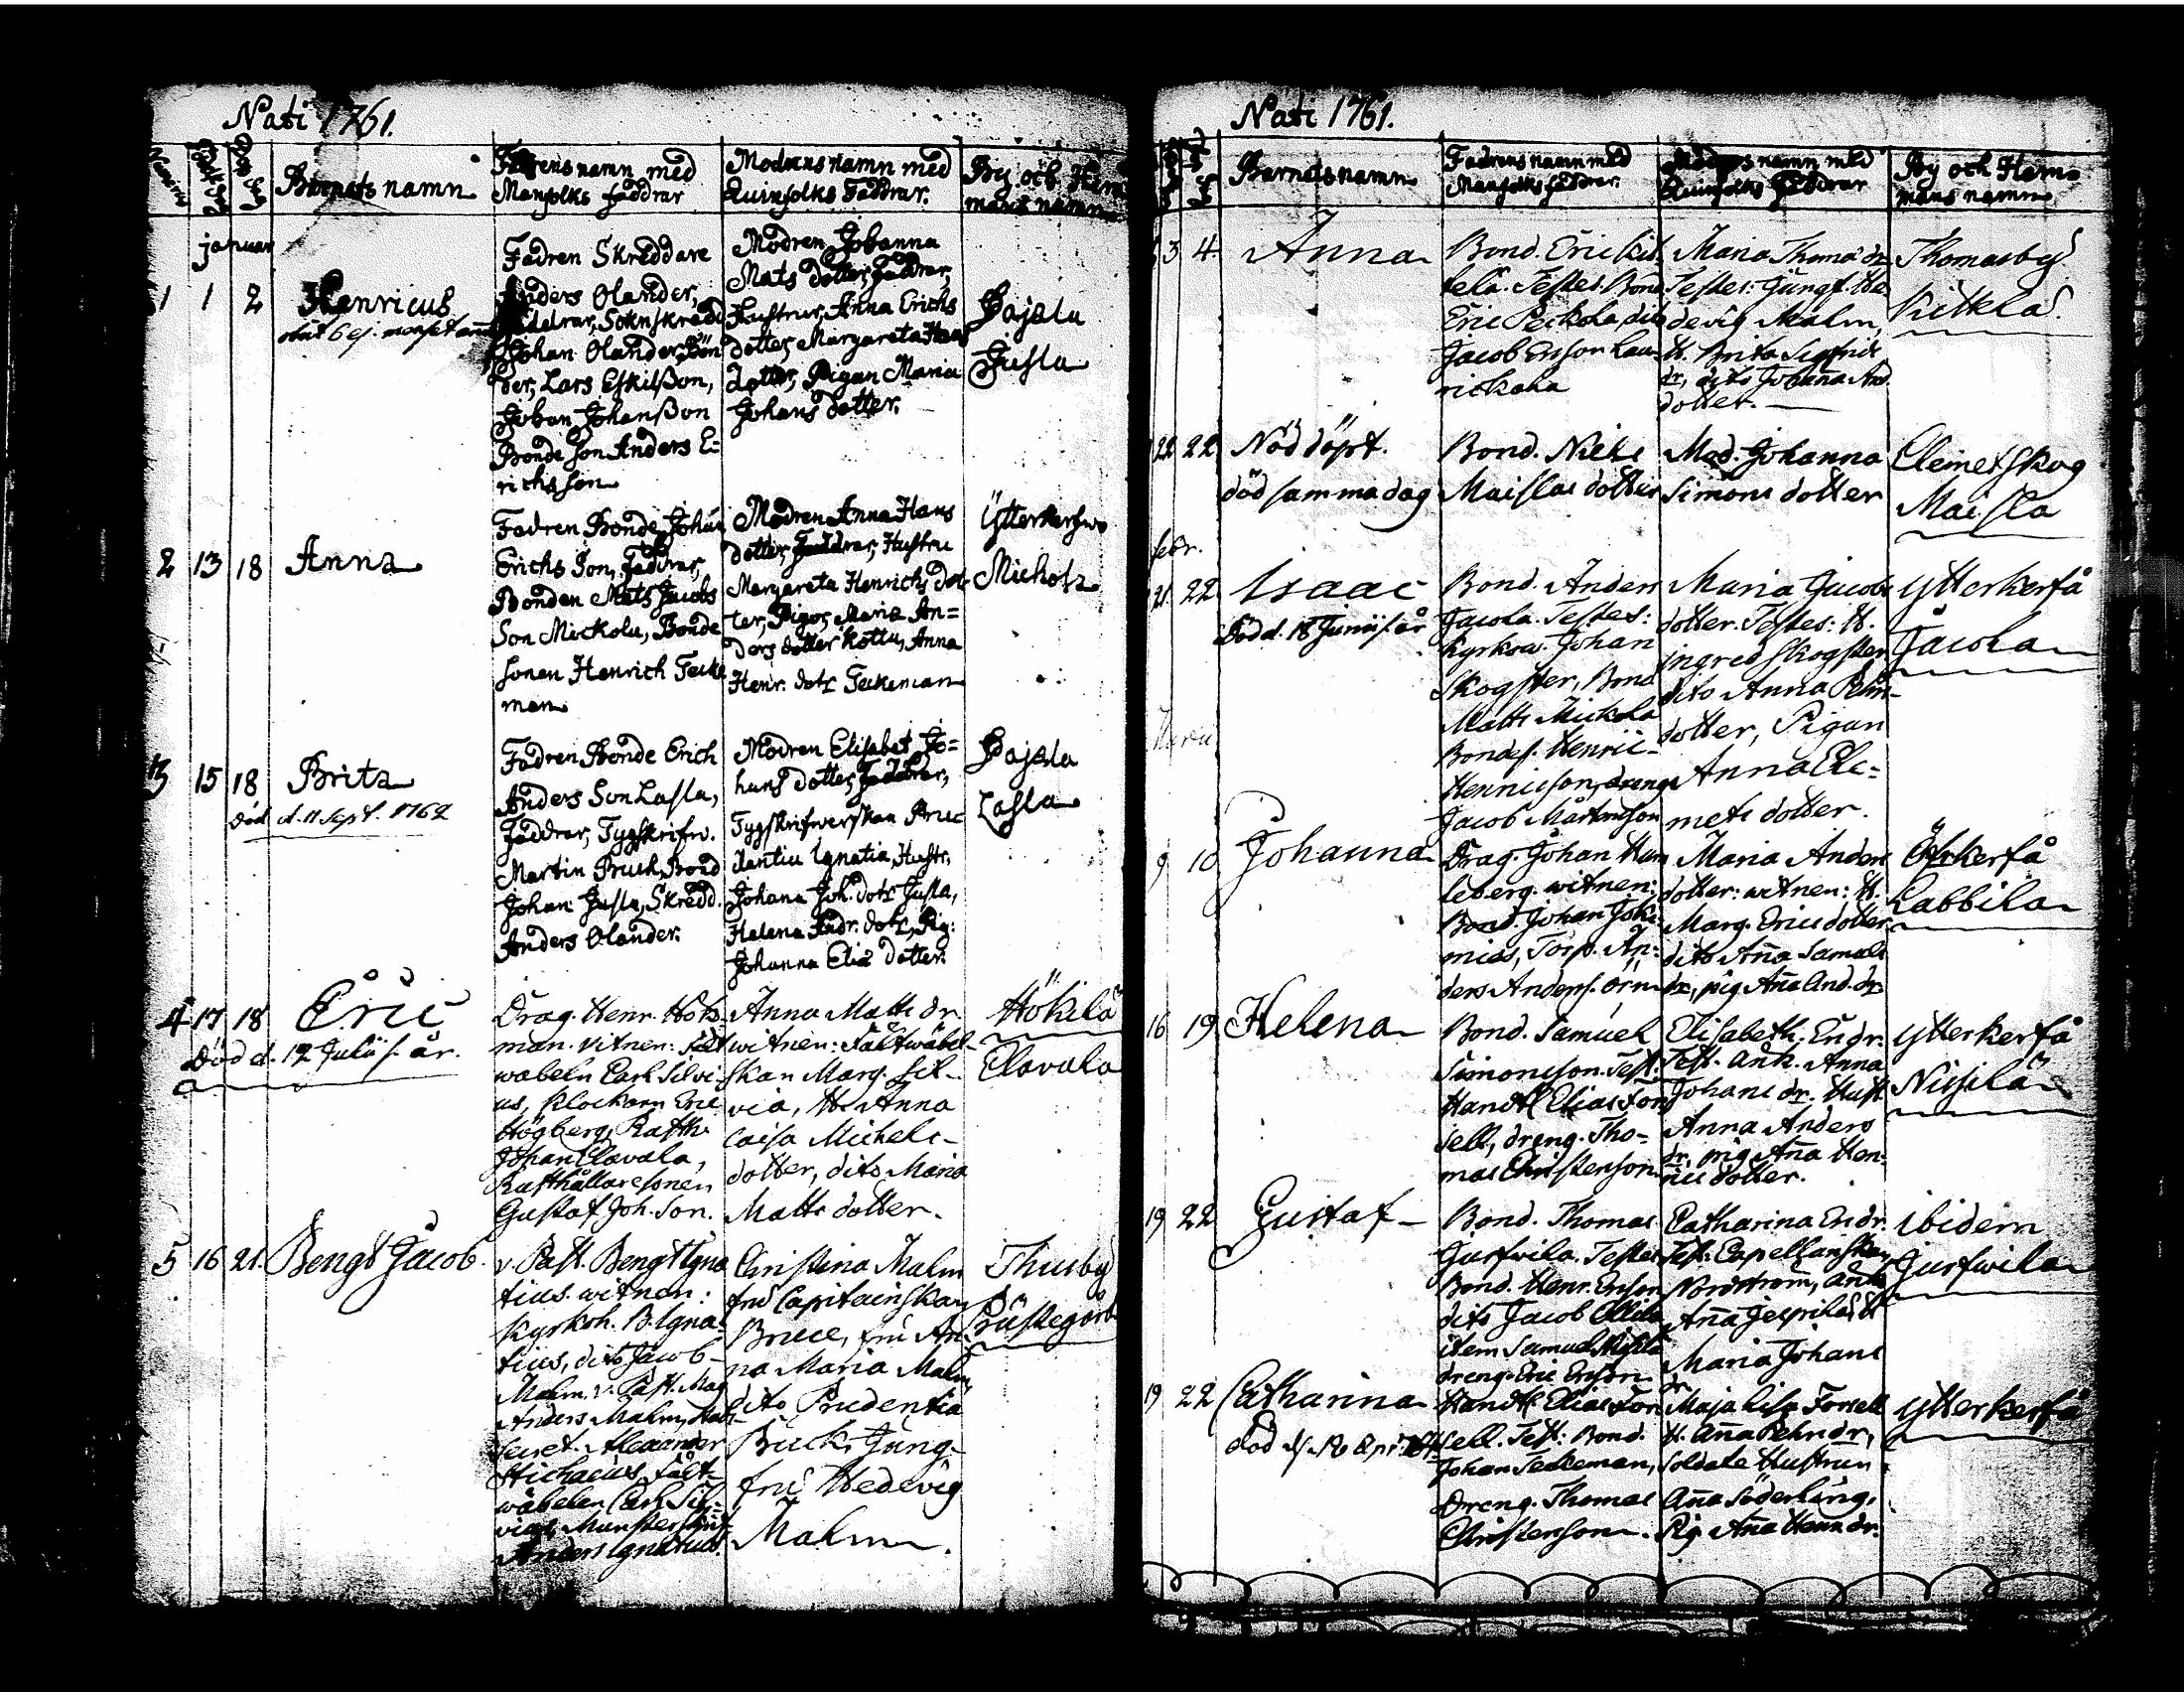 Nati 1761.
Barnets namn
Fadrens namn med
Manfolks faddrar
Modrens namn med
Quinfolks Faddrar.
By och Hem
mans namn
januari
1 1 2 Henricus
Fadren Skreddare
Anders Olander,
Faddrar, Soknskredd
Johan Olander, Bön
der, Lars Eskilßon,
Johan Johanßon
Bonde Son Anders E=
richs son
Modren Johanna
Mats dotter, faddrar,
Hustrur, Anna Erichs
dotter, Margareta Hans
dotter, Pigan Maria
Johans dotter.
Pajala
Jusla
2 13 18 Anna
Fadren Bonde Johan
Erichs Son, faddrar,
Bonden Mats Jacobs
Son Mickola, Bonde
sonen Henrich Tecke
man
Modren Anna Hans
dotter, faddrar, Hustru
Margareta Henrichs dot
ter, Pigor, Maria An=
ders dotter Kottu, Anna
Henr. dotr Teckeman
Ytterkerswo
Mickola
3 15 18 Brita
död d. 11 Sept. 1762
Fadren Bonde Erich
Anders Son Lasla,
Faddrar, Tygskrifw.
Martin Bruck, Bond
Johan Jusla, Skredd.
Anders Olander.
Modren Elisabet Jo=
hans dotter, faddrar,
Tygskrifwerskan Bruc
Ignatia, Hustr,
Johana Joh. dotr Jusla,
Helena Andr. dotr, Pig:
Johanna Eliæ dotter.
Pajala
Lasla
4 17 18 Eric
Död d. 12 Julii s. år.
Drag. Henr. Hols-
man. vitnen: fält
wäbeln Carl Silvi-
us, Klockarn Eric
Högberg, Rusth.
Johan Elavala,
Rusthållaresonen
Gustaf Joh. Son.
Anna Matts dr
witnen: Fältwäbel-
skan Marg. Sil-
via, H. Anna
Caisa Michels-
dotter, dito Maria
Matts dotter.
Hökilä
Elavala
5 16 21. Bengt Jacob.
v. Past. Bengt Igna
tius. witnen:
Kyrkoh. B. Igna-
tius, dito Jacob
Malm. v. Past. Mag
Anders Malm,
Secret. Alexander
fält-
wäbelen Carl Sil-
vius, Munsterskrif
Anders Ignatius.
Christina Malm
fru Capitainskan
Bruce, fru An-
na Maria Malm,
dito Prudentia
Buck, Jung-
fru Hedevig
Malm.
Thusby
Prästegård
Nati 1761.
Barnets namn
Fadrens namn med
Manfolks faddrar
Modrens namn med
Quinfolks faddrar
By och Hem-
mans namn
3 4. Anna
Bond. Eric Kit-
telä. Testes. Bond
Eric Peckola, dito
Jacob Ersson Lau-
rickala
Maria Thomæ dr
Testes: Jungf. He
devig Malm,
H. Brita Sigfrids
dr, dito Johana And.
dotter.
Thomasby
Kittelä.
22 22 Nöddöpt.
död samma dag
Bond. Niels
Maislas dotter
Mod. Johanna
Simons dotter
Clemetskog
Maisla
febr.
21. 22 Isaac
Död d. 18 Junii s. år
Bond. Anders
Jacola. Testes:
Kyrkow. Johan
Skogster, Bond
Matts Mickola
Bondes. Henric
Henricsson, dreng
Jacob Mårtensson
Maria Jacobs
dotter. Testes: H.
ingred skogster
dito Anna Pehrs-
dotter, Pigan
Anna Cle-
mets dotter.
Ytterkerfå
Jacola
9 10 Johanna
Drag. Johan Ham
leberg. witnen:
Bond. Johan Joke-
mias, Torp. An-
ders Anders. Örn
Maria Anders
dotter: witnen: H.
Marg. Erics dotter
dito Aña Samuels
dr, pig Aña And. dr
Öfrkerfå
Labbila
16 19 Helena
Bond. Samuel
Simonsson. Test:
Handtl. Elias For
sell, dreng. Tho-
mas Christersson
Elisabeth, Er. dr.
Test. Änk. Anna
Johans dr. Hust.
Anna Anders
dr, pig Aña Hen-
rics dotter.
Ytterkerfå
Nissilä
19 22 Gustaf
Bond. Thomas
Jusfwila. Testes
Bond. Henr. Ersson
dito Jacob Ollila
item Samuel Nissilä
dreng. Eric Ersson
Catharina Er. dr.
Test: Capellanskan
Nordström, Änk
Aña H
Maria Johans
dr.
ibidem
Jusfwila
19 22 Catharina
Handtl. Elias For
sell. Test: Bond.
Johan Teckeman,
Dreng. Thomas
Christersson.
Maja Lisa Forsell
H. Aña Pehrs dr,
Soldats Hustrun
Aña Söderling,
Pig Aña Henr. dr.
Ytterkerfå